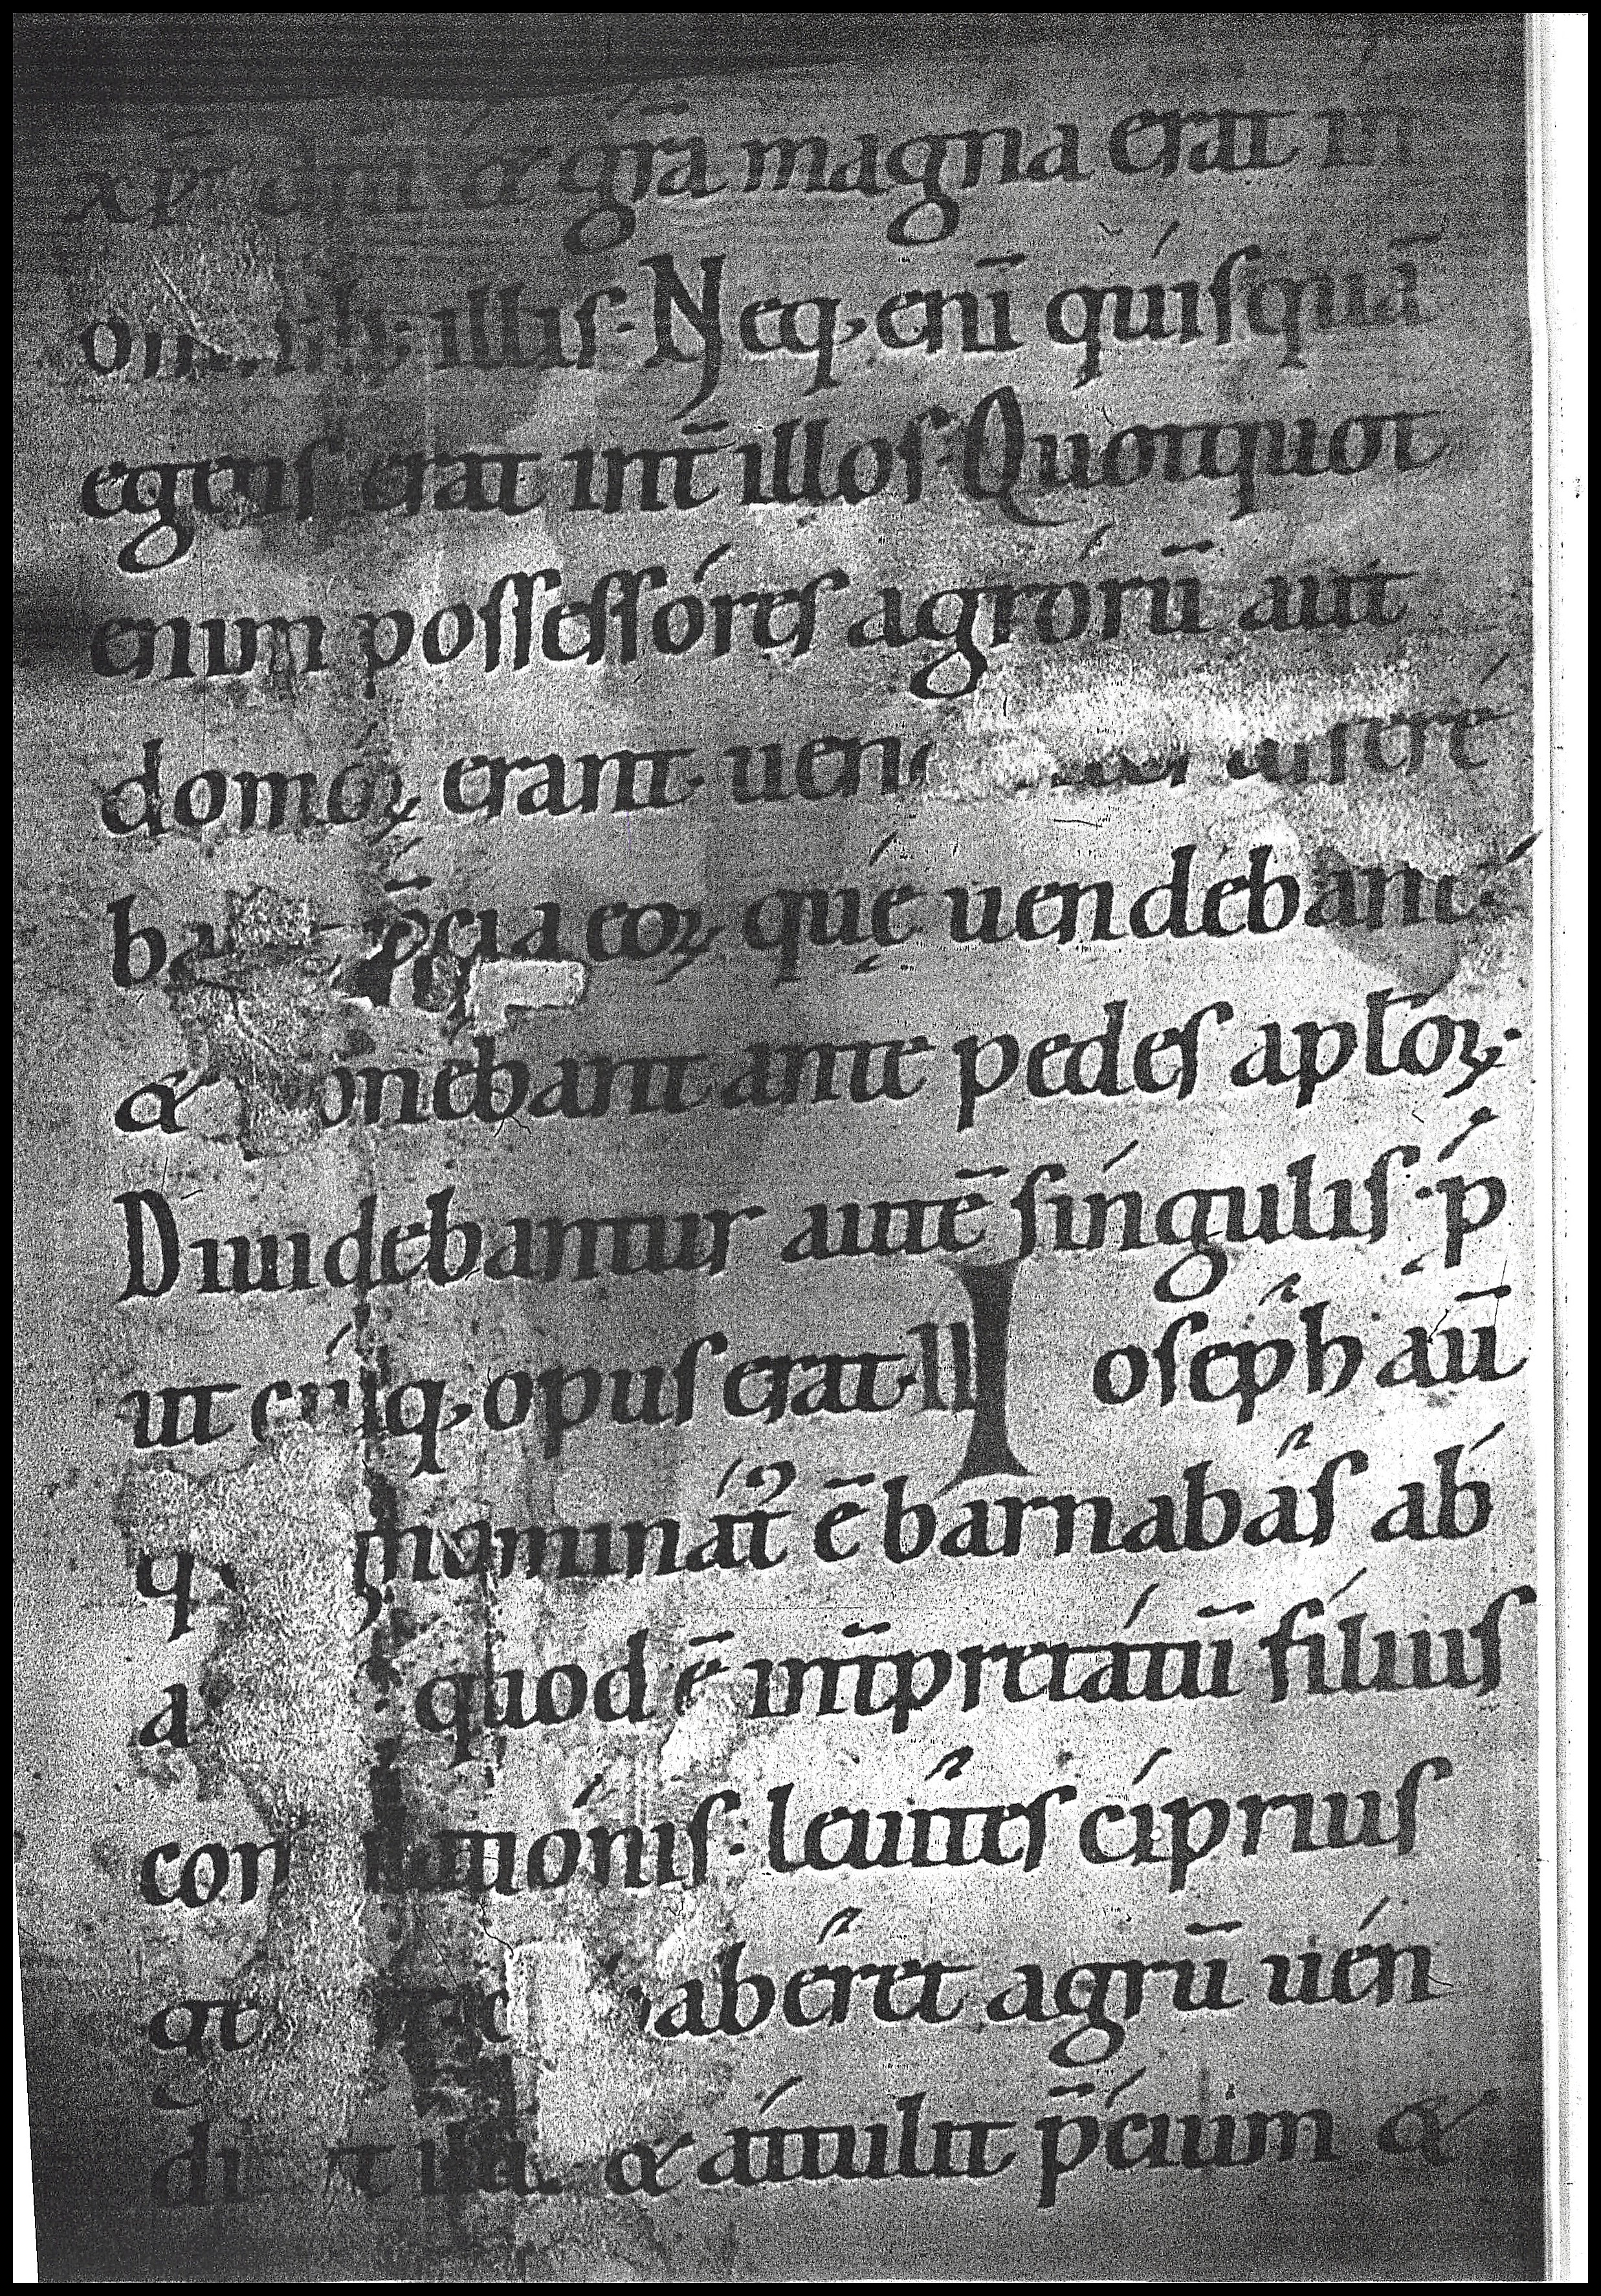 xp̄i dn̄i & grā magna erat in
illis · Neq, enī quisquā
egens erat int̄ illos · Quotquot
enim possessóres agrórū aut
domóꝝ erant
p̄cia eoꝝ que uendebant
& ponebant ante pedes apłoꝝ ·
Diuidebantur autē síngulis · p
ut cúiq, opus erat · ll Ioseph aū
cognominat᷒ ē barnabas ab
quod ē int̄pretátū fílius
consolatiónis · leuites cíprius
haberet agrū uén
& áttulit p̄cium &